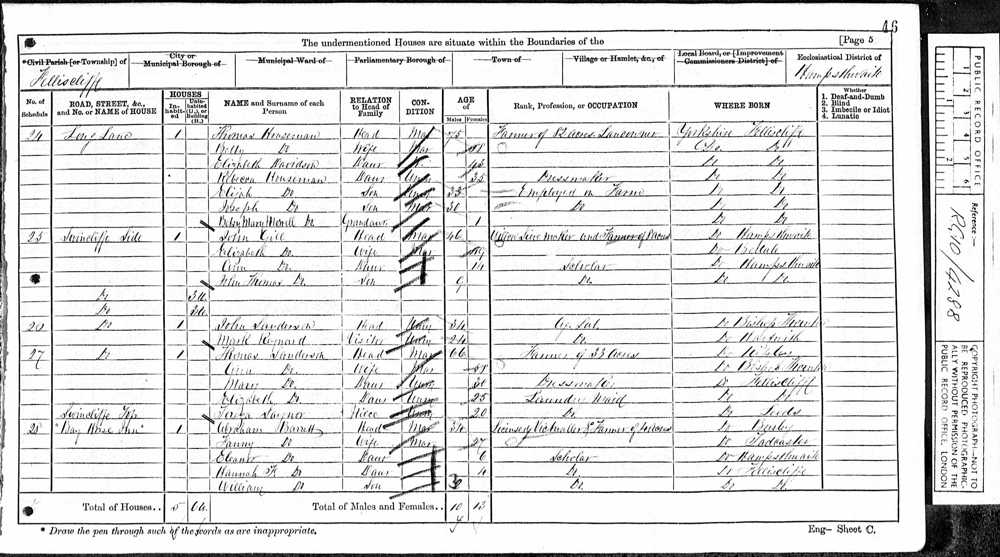 46
The undermentioned Houses are situate within the Boundaries of the [Page 5
*Civil Parish [or Township] of City or Municipal Borough of Municipal Ward of Parliamentary Borough of Town of Village or Hamlet, &c., of Local Board, or [Improvement Commissioners District] of Ecclesiastical District of
Felliscliffe Hampsthwaite
No. of Schedule ROAD, STREET, &c., and No. or NAME of HOUSE HOUSES Inhabited Uninhabited (U.), or Building (B.) NAME and Surname of each Person RELATION to Head of Family CONDITION AGE of Males Females Rank, Profession, or OCCUPATION WHERE BORN Whether 1. Deaf-and-Dumb 2. Blind 3. Imbecile or Idiot 4. Lunatic
24 Long Lane 1 Thomas Houseman Head Mar 75 Farmer of Acres Landowner Yorkshire Felliscliffe
Betty Do Wife Mar Do Do
Elizabeth Davidson Daur Do Do
Rebecca Houseman Daur Unm 35 Dressmaker Do Do
Elijah Do Son Unm 33 Employed on Farm Do Do
Joseph Do Son Mar 30 Do Do Do
Betsy Mary Do Grandaur 1 Do Do
25 Swincliffe Side 1 John Gill Head Mar 46 and Farmer of Acres Do Hampsthwaite
Elizabeth Do Wife Mar Do
Do Daur 14 Scholar Do Hampsthwaite
John Thomas Do Son 9 Do Do Do
Do 3u
Do 3u
26 Do 1 John Sanderson Head Unm 34 Ag. Lab. Do Bishop
Mark Visitor Unm 24 Do Do
27 Do 1 Thomas Sanderson Head Mar 66 Farmer of 33 Acres Do Ripley
Do Wife Mar 58 Do Bishop
Mary Do Daur Unm 30 Dressmaker Do Felliscliffe
Elizabeth Do Daur Unm 25 Laundry Maid Do Do
Swincliffe Top Niece Unm 20 Do Do Leeds
28 "Bay Horse Inn" 1 Abraham Barrett Head Mar 34 Licensed Victualler & Farmer of Acres Do
Fanny Do Wife Mar 27 Do Tadcaster
Eleanor Do Daur 6 Scholar Do Hampsthwaite
Hannah Do Daur 4 Do Do Felliscliffe
William Do Son 3 Do Do Do
Total of Houses.. 5 6u Total of Males and Females.. 10 13
* Draw the pen through such of the words as are inappropriate.
Eng- Sheet C.
PUBLIC RECORD OFFICE
1 2 3 4 5 6
Reference :-
RG10/4288
COPYRIGHT PHOTOGRAPH-NOT TO BE REPRODUCED PHOTOGRAPHICALLY WITHOUT PERMISSION OF THE PUBLIC RECORD OFFICE, LONDON